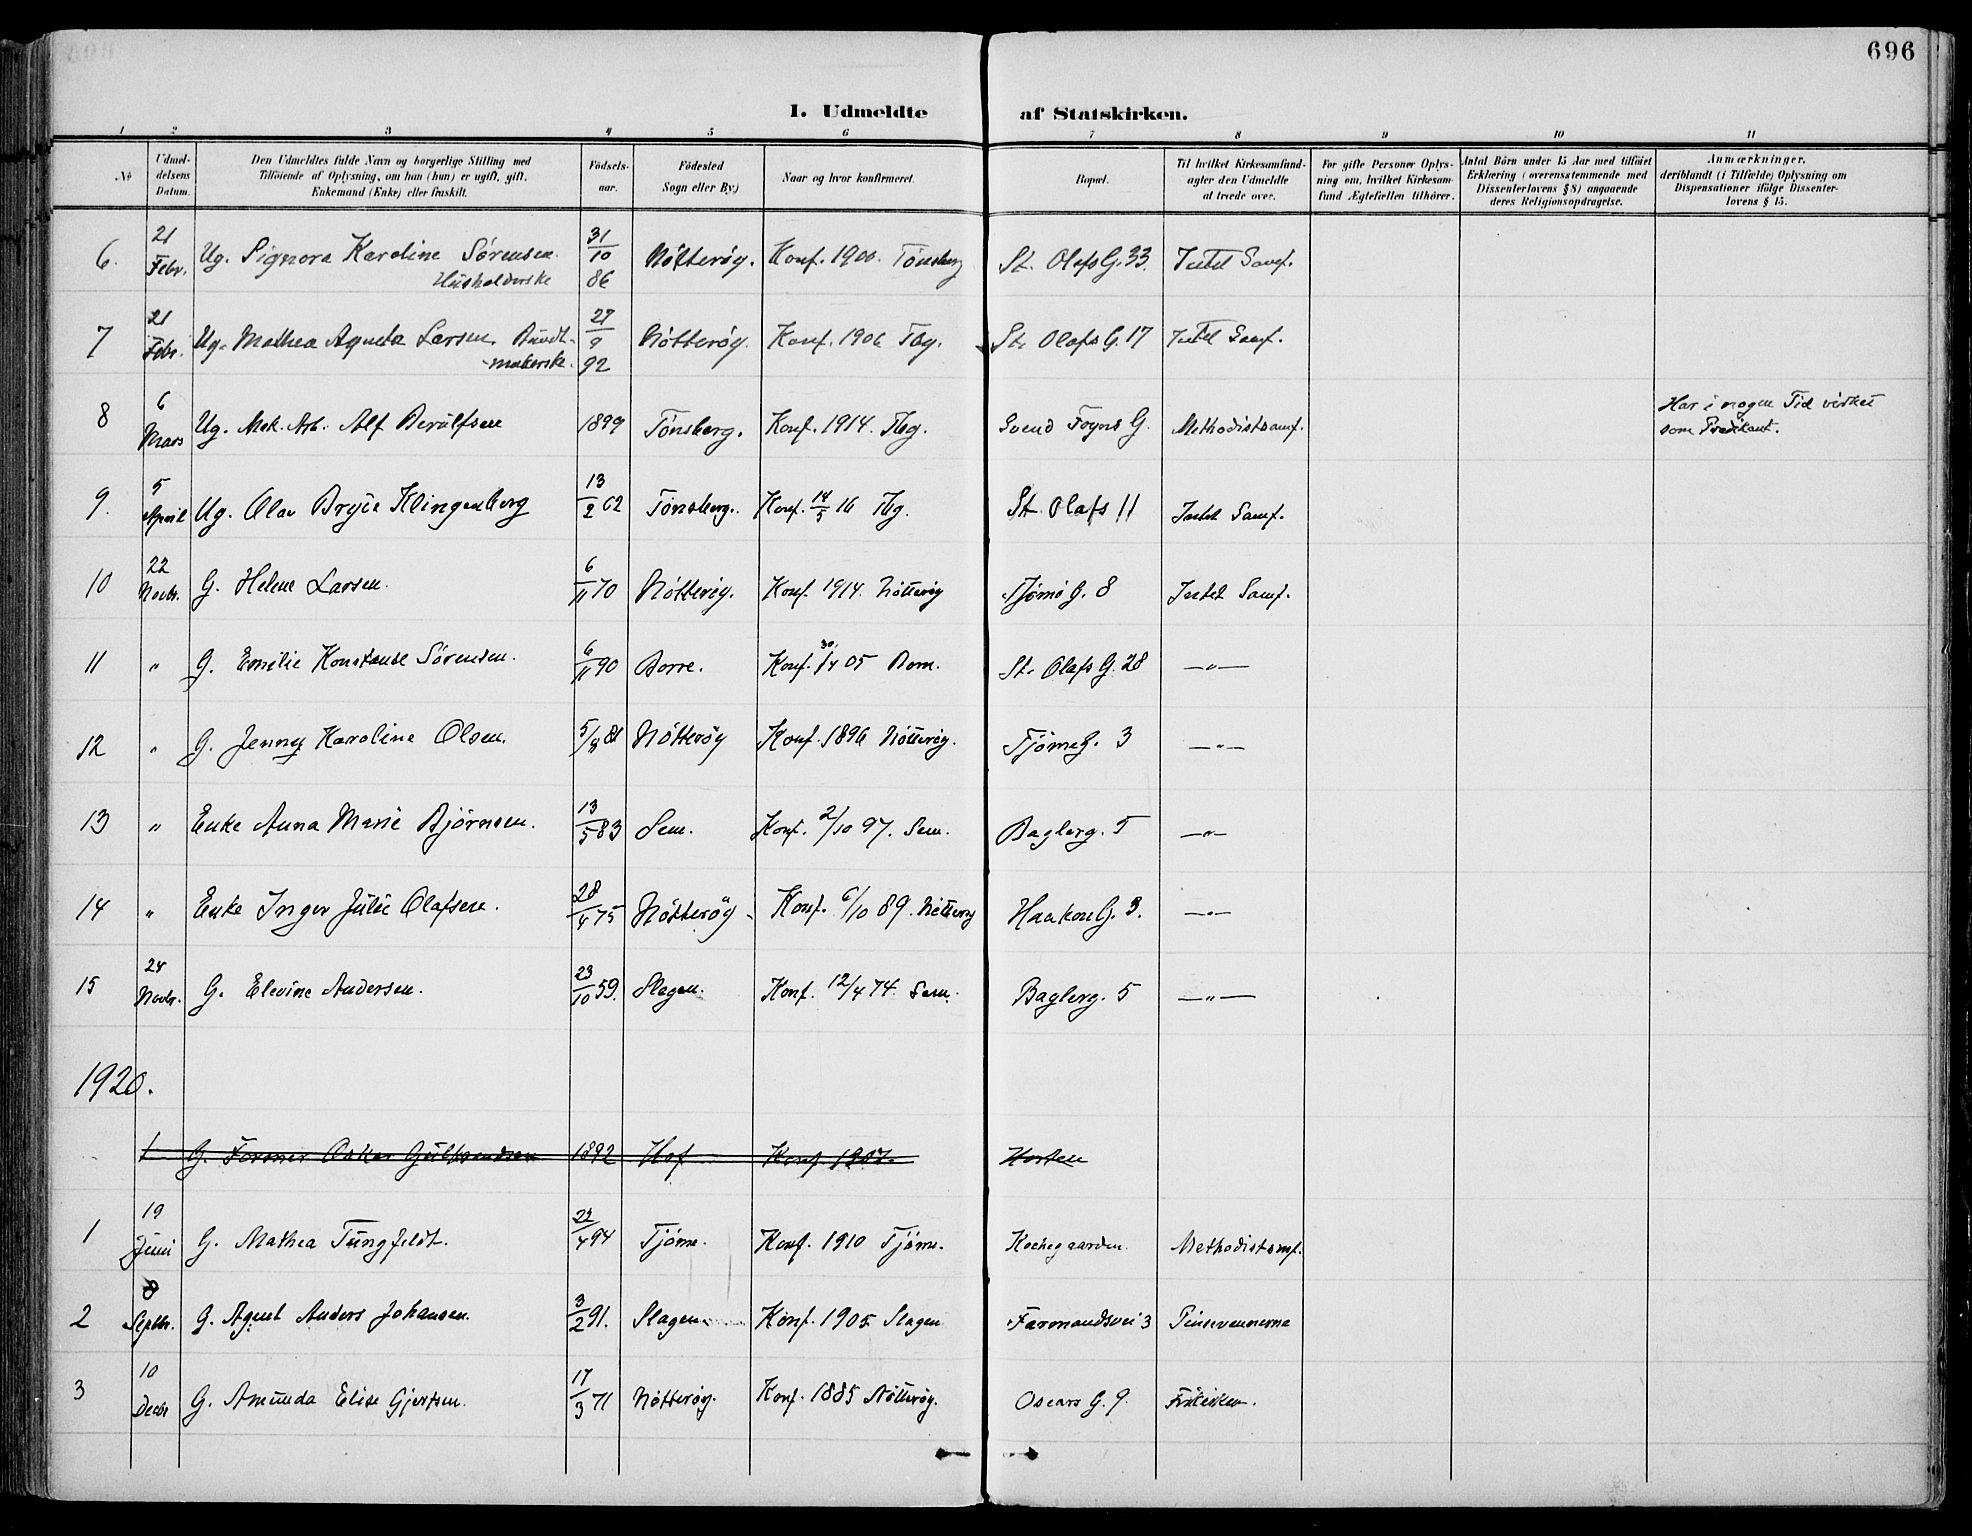 696
I. Udmeldte af Statskirken.
1 2 3 4 5 6 7 8 9 10 11
No
Udmel-
delsens
Datum.
Den Udmeldtes fulde Navn og borgerlige Stilling med
Tilføiende af Oplysning, om han (hun) er ugift, gift,
Enkemand (Enke) eller fraskilt.
Fødsels-
aar.
Fødested
Sogn eller By.)
Naar og hvor konfirmeret.
Bopæl.
Til hvilket Kirkesamfund-
agter den Udmeldte
at træde over.
For gifte Personer Oplys-
ning om, hvilket Kirkesam-
fund Ægtefællen tilhører.
Antal Børn under 15 Aar med tilføiet
Erklæring (overensstemmende med
Dissenterlovens § 8) angaaende
deres Religionsopdragelse.
Anmærkninger,
deriblandt (i Tilfælde) Oplysning om
Dispensationer ifølge Dissenter-
lovens § 15.
6. 21 Febr. Ug. Signora Karoline Sørensen. Husholderske 31/10 86 Nötteröy. Konf. 1900. Tönsberg St. Olafs G. 33. Intet Samf.
7 21 Febr. Ug. Mathea Agneta Larsen. Bundt-makerske. 27/9 92 Nötteröy. Konf. 1906 Tbg. St. Olafs G. 17 Intet Samf.
8 6 Mars Ug. Mek. Arb. Alf Berulfsen 1899 Tönsberg. Konf. 1914. Tbg. Svend Foyns G. Methodistsamf. Har i nogen Tid virket
som Predikant.
9. 5 April Ug. Olav Bryie Klingenberg 13/2 62 Tönsberg. Konf. 14/5 16 Tbg. St. Olafs 11 Intet Samf.
10 22 Novbr. G. Helene Larsen. 6/11 70 Nötteröy. Konf. 1914. Nötteröy Tjömö G. 8 Intet Samf.
11 " G. Emilie Konstanse Sörensen. 6/11 90 Borre. Konf. 30/4 05 Borre. St. Olafs G. 28 —"—
12 " G. Jenny Karoline Olsen. 5/8 81 Nötteröy Konf. 1896 Nötteröy. Tjöme G. 3 —"—
13 " Enke Anna Marie Bjørnsen. 13/5 83 Sem. Konf. 2/10 97. Sem. Baglerg. 5 —"—
14 " Enke Inger Julie Olafsen. 28/4 75 Nötteröy Konf. 6/10 89. Nötteröy Haakon G. 3. —"—
15 24 Novbr. G. Elevine Andersen. 23/10 59. Slagen. Konf. 12/4 74. Sem. Baglerg. 5 —"—
1920.
1 G. Former Oskar Gulbrandsen 1892 Hof Konf. 1907. Horten
1 19 Juni G. Mathea Tungfeldt. 22/4 94 Tjöme. Konf. 1910 Tjöme. Kochegaarden. Methodistsmf.
2 8 Septbr. G. Agnet Anders Johansen. 3/2 91. Slagen Konf. 1905 Slagen Farmandsvei 3 Pinsevennerne
3 10 Decbr G. Amunda Elise Gjertsen. 17/3 71 Nötteröy. Konf. 1885 Nötteröy. Oscars G. 9. Frikirken.